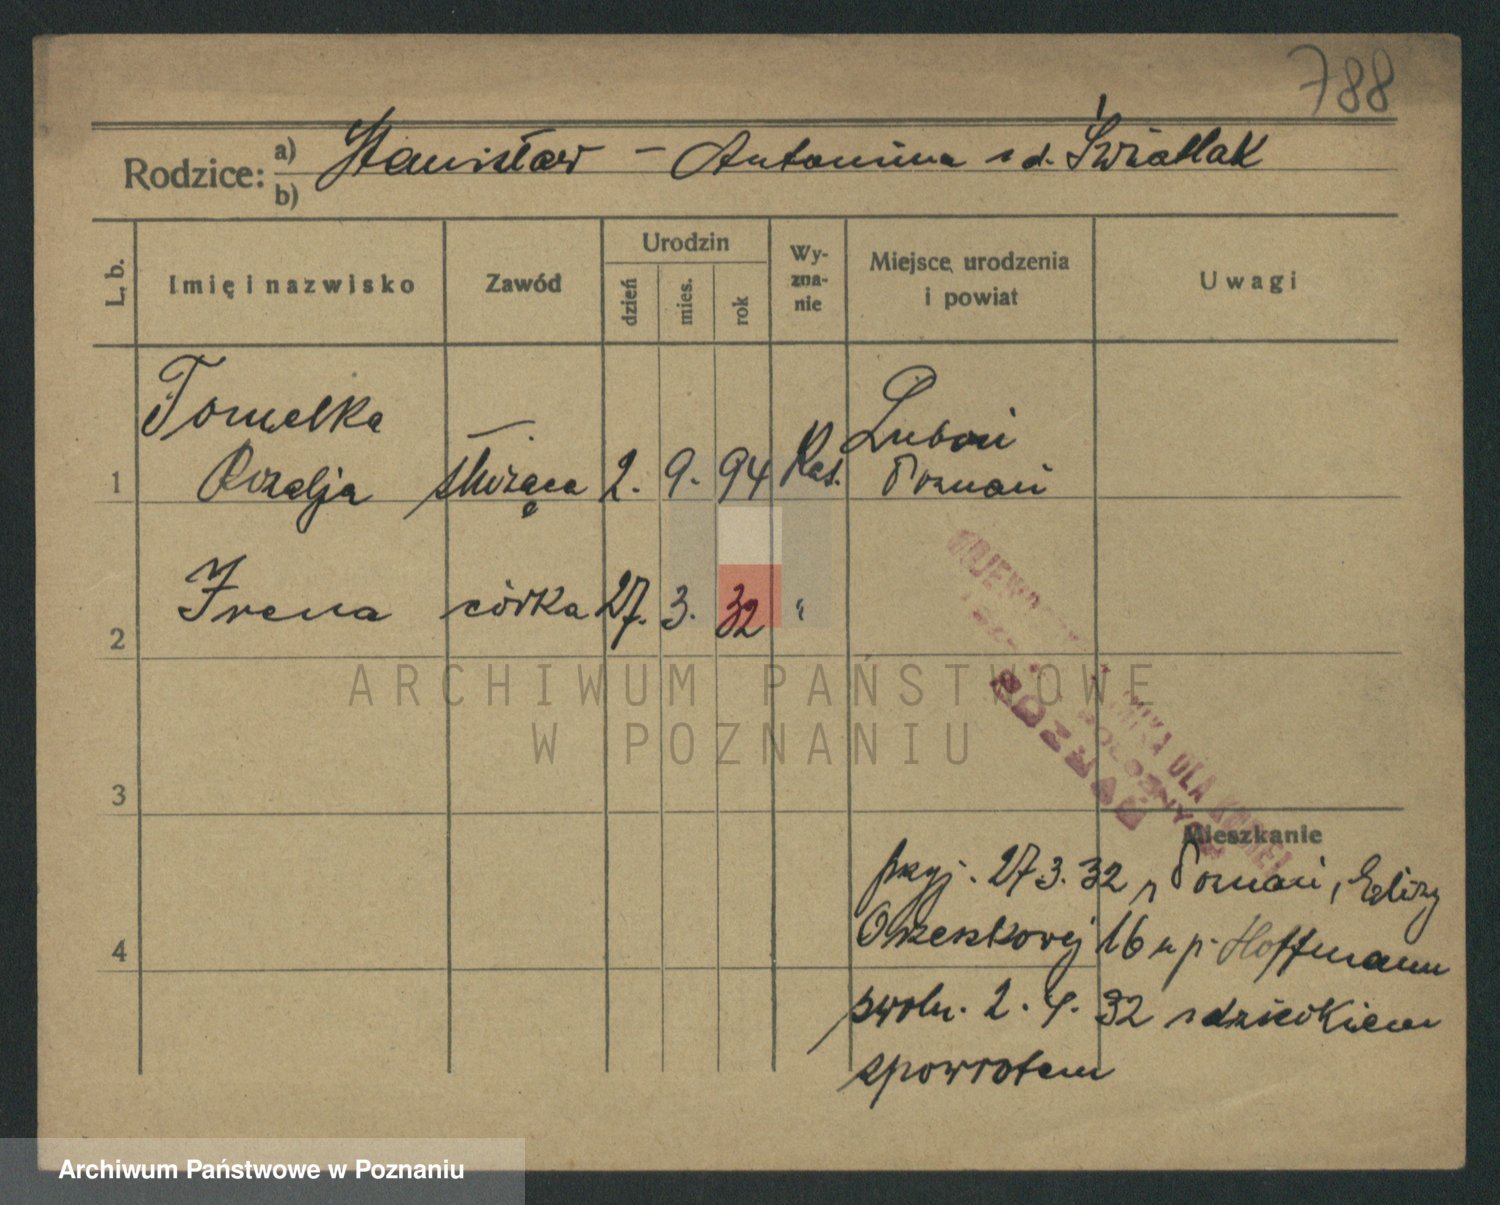 788
Rodzice: a) Stanisław – Antonina z d. Światlak
b)
L. b.
Imię i nazwisko
Zawód
Urodzin
dzień
mies.
rok
Wy-
zna-
nie
Miejsce urodzenia
i powiat
Uwagi
Tomelka
Luboń
1 Rozalja służąca 2. 9. 94 Kat. Poznań
2 Irena córka 27. 3. 32 "
POZNAŃ
3
Mieszkanie
przyj. 27 3. 32 z Poznań, Elizy
Orzeszkowej 16 u p. Hoffmann
4
zwoln. 2. 4. 32 z dzieckiem
spowrotem
ARCHIWUM PAŃSTWOWE
W POZNANIU
Archiwum Państwowe w Poznaniu